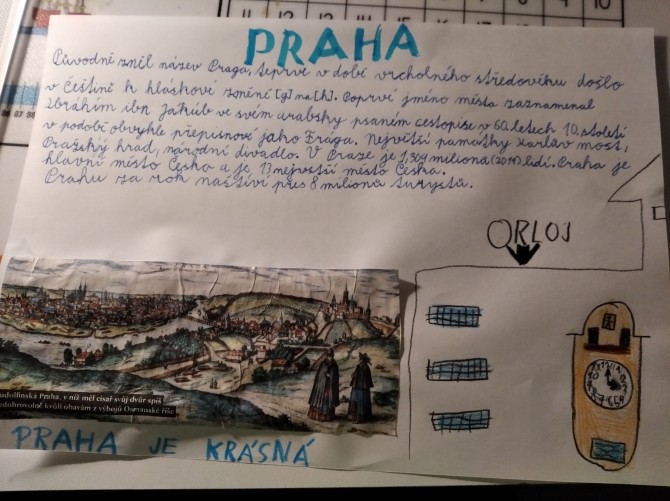 PRAHA
Původně zněl název Praga, teprve v době vrcholného středověku došlo
v češtině k hláskové změně [g] na [h]. Poprvé jméno města zaznamenal
Ibráhím ibn Jákúb ve svém arabsky psaném cestopise v 60. letech 10. století
v podobě obvykle přepisované jako Frága. Největší památky Karlův most,
Pražský hrad, národní divadlo. V Praze je 1,309 milionů (2019) lidí. Praha je
hlavní město Česka a je 13 největší město Česka.
Prahu za rok naštíví přes 8 milionů turystů.
ORLOJ
udolfínská Praha, v níž měl císař svůj dvůr spíš
edobrovolně kvůli obavám z výbojů Osmanské říše
PRAHA JE KRÁSNÁ